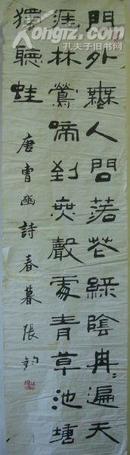 門外無人問落花綠陰冉冉遍天
涯林鶯啼到無聲處青草池塘
獨聽蛙
唐曹幽詩春暮張
Kongfz.com
孔夫子旧书网